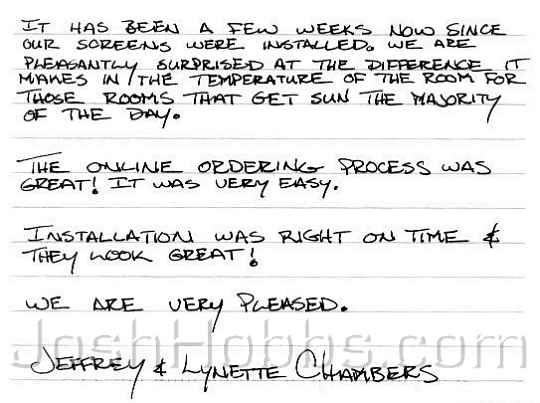 IT HAS BEEN A FEW WEEKS NOW SINCE
OUR SCREENS WERE INSTALLED. WE ARE
PLEASANTLY SURPRISED AT THE DIFFERENCE IT
MAKES IN THE TEMPERATURE OF THE ROOM FOR
THOSE ROOMS THAT GET SUN THE MAJORITY
OF THE DAY.
THE ONLINE ORDERING PROCESS WAS
GREAT! IT WAS VERY EASY.
INSTALLATION WAS RIGHT ON TIME &
THEY LOOK GREAT!
WE ARE VERY PLEASED.
JoshHobbs.com
JEFFREY & LYNETTE CHAMBERS